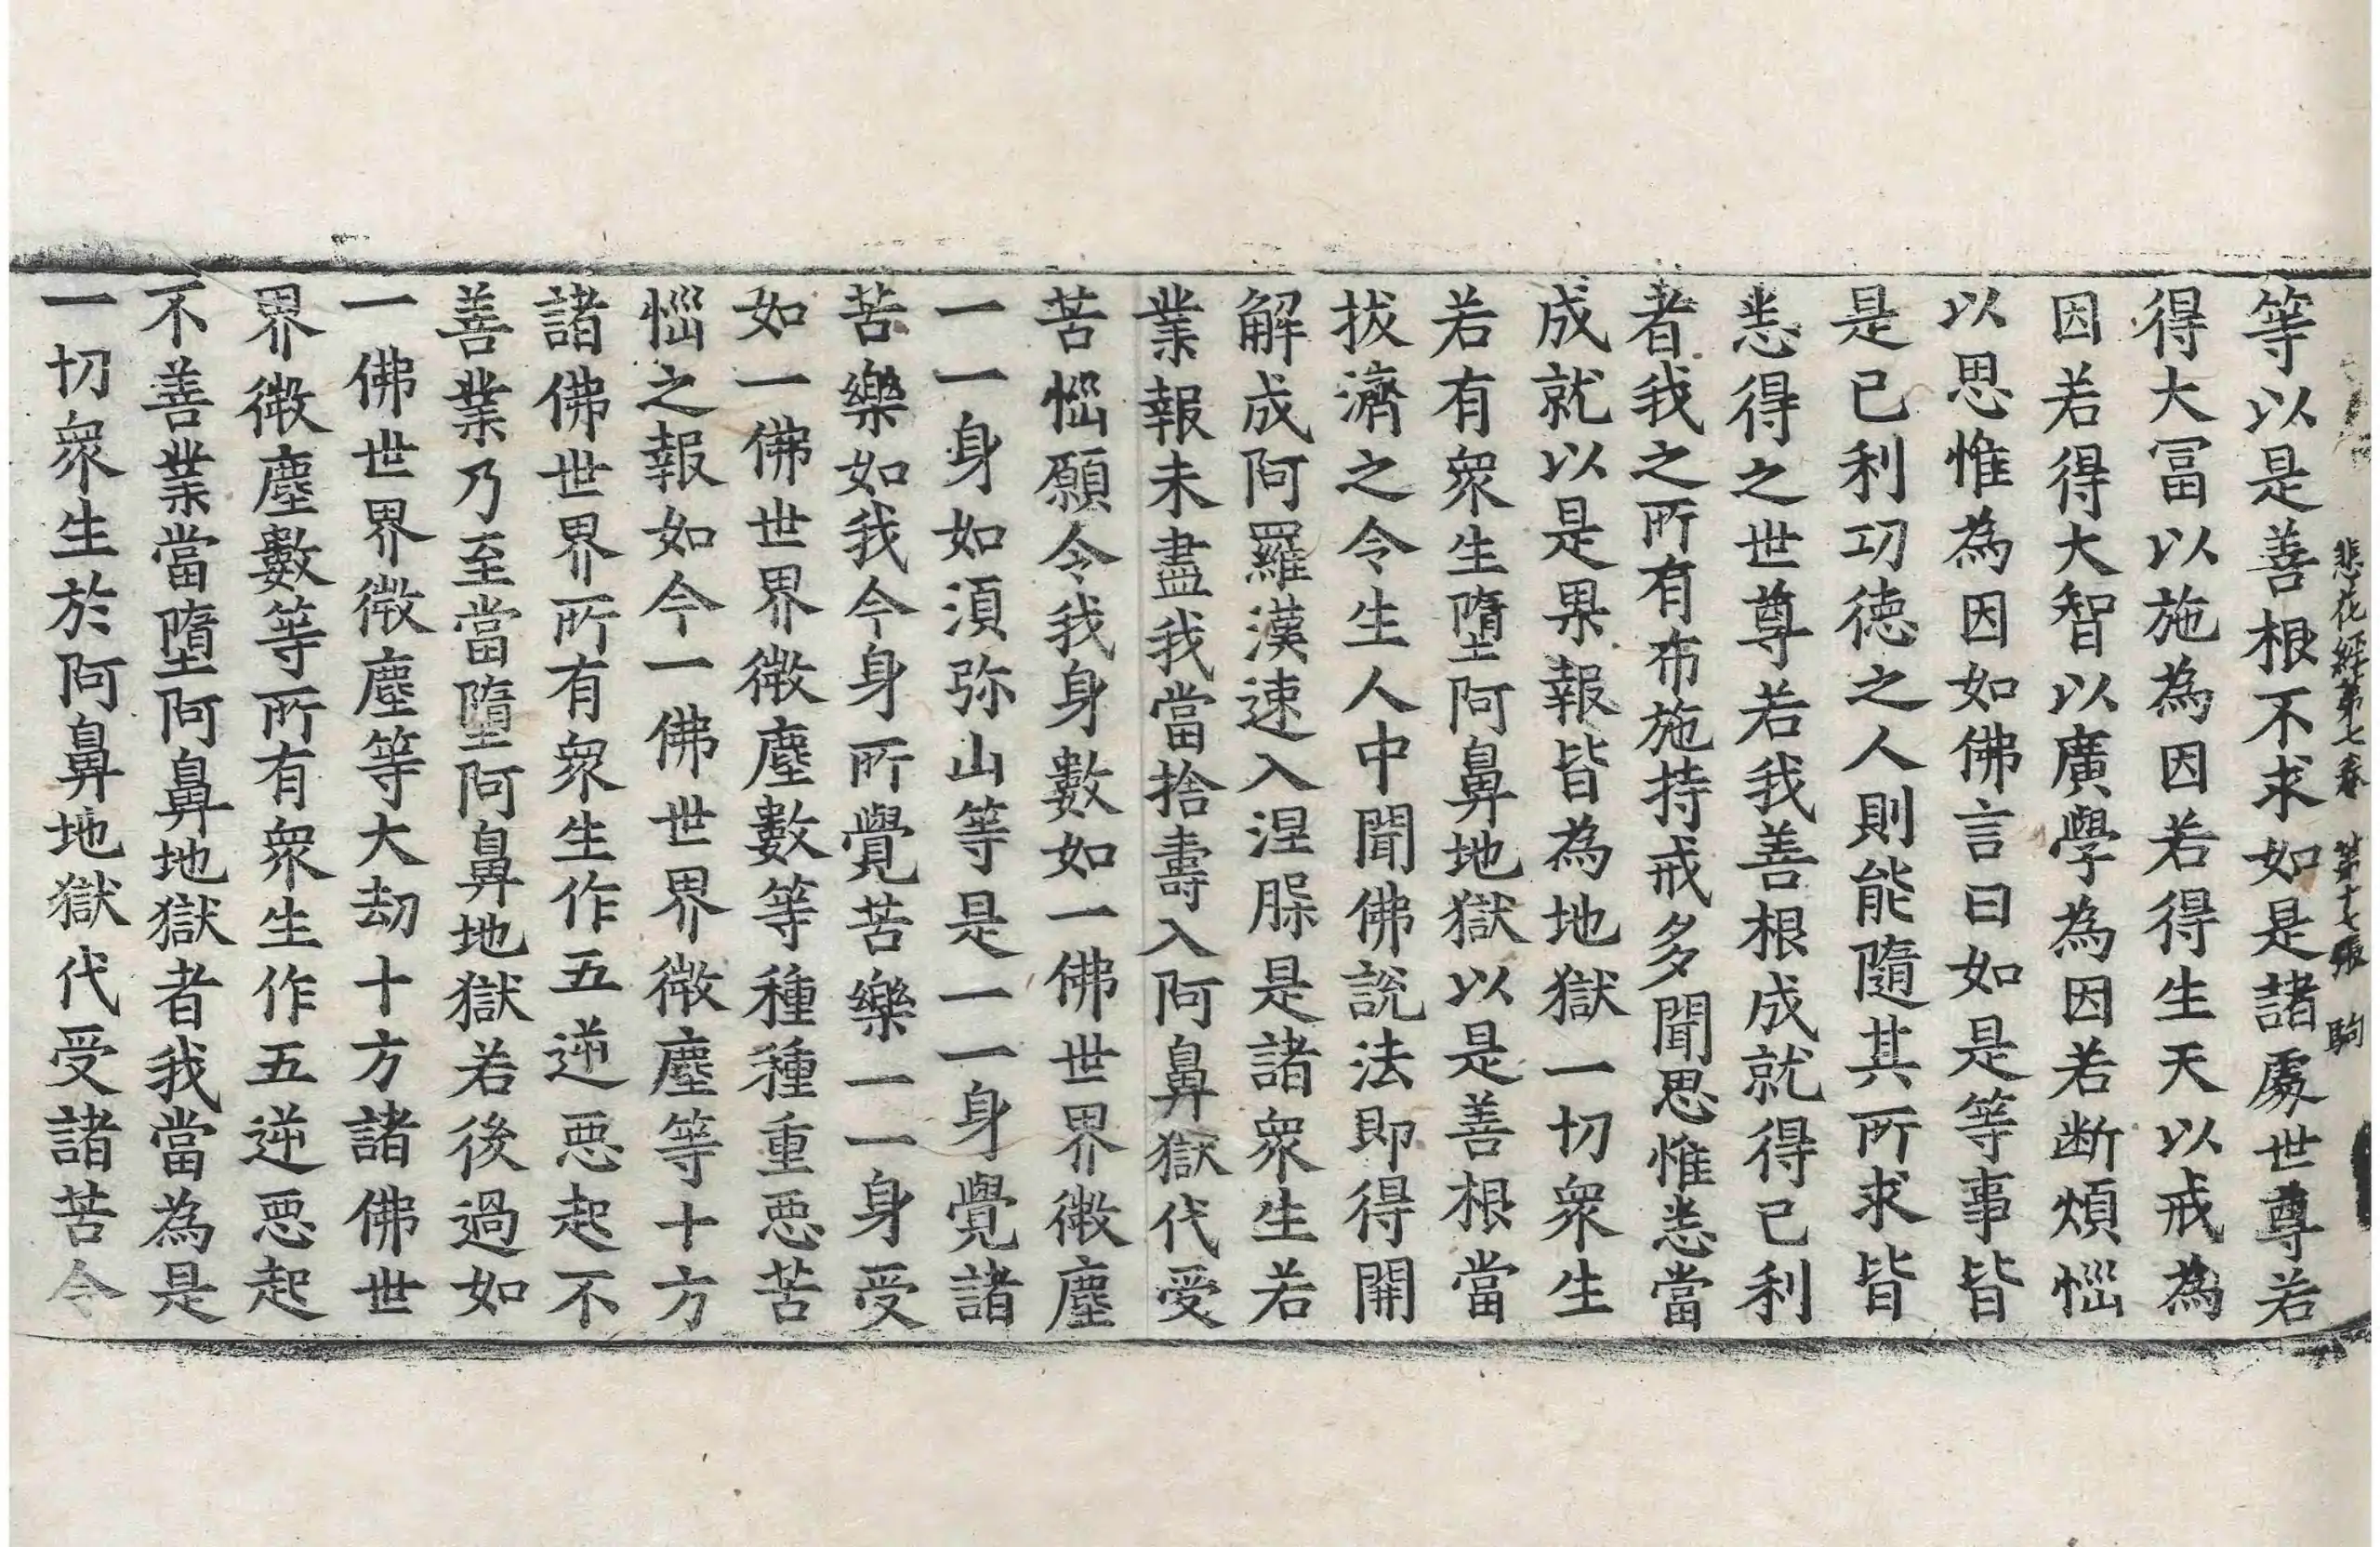 悲花經第七卷 第十七張 駒
等以是善根不求如是諸處世尊若
得大冨以施為因若得生天以戒為
因若得大智以廣學為因若断煩惱
以思惟為因如佛言曰如是等事皆
是已利功徳之人則能隨其所求皆
悉得之世尊若我善根成就得已利
者我之所有布施持戒多聞思惟悉當
成就以是果報皆為地獄一切衆生
若有衆生墮阿鼻地獄以是善根當
拔濟之令生人中聞佛說法即得開
解成阿羅漢速入涅槃是諸衆生若
業報未盡我當捨壽入阿鼻獄代受
苦惱願令我身數如一佛世界微塵
一一身如須弥山等是一一身覺諸
苦樂如我今身所覺苦樂一一身受
如一佛世界微塵數等種種重惡苦
惱之報如今一佛世界微塵等十方
諸佛世界所有衆生作五逆惡起不
善業乃至當墮阿鼻地獄若後過如
一佛世界微塵等大劫十方諸佛世
界微塵數等所有衆生作五逆惡起
不善業當墮阿鼻地獄者我當為是
一切衆生於阿鼻地獄代受諸苦令